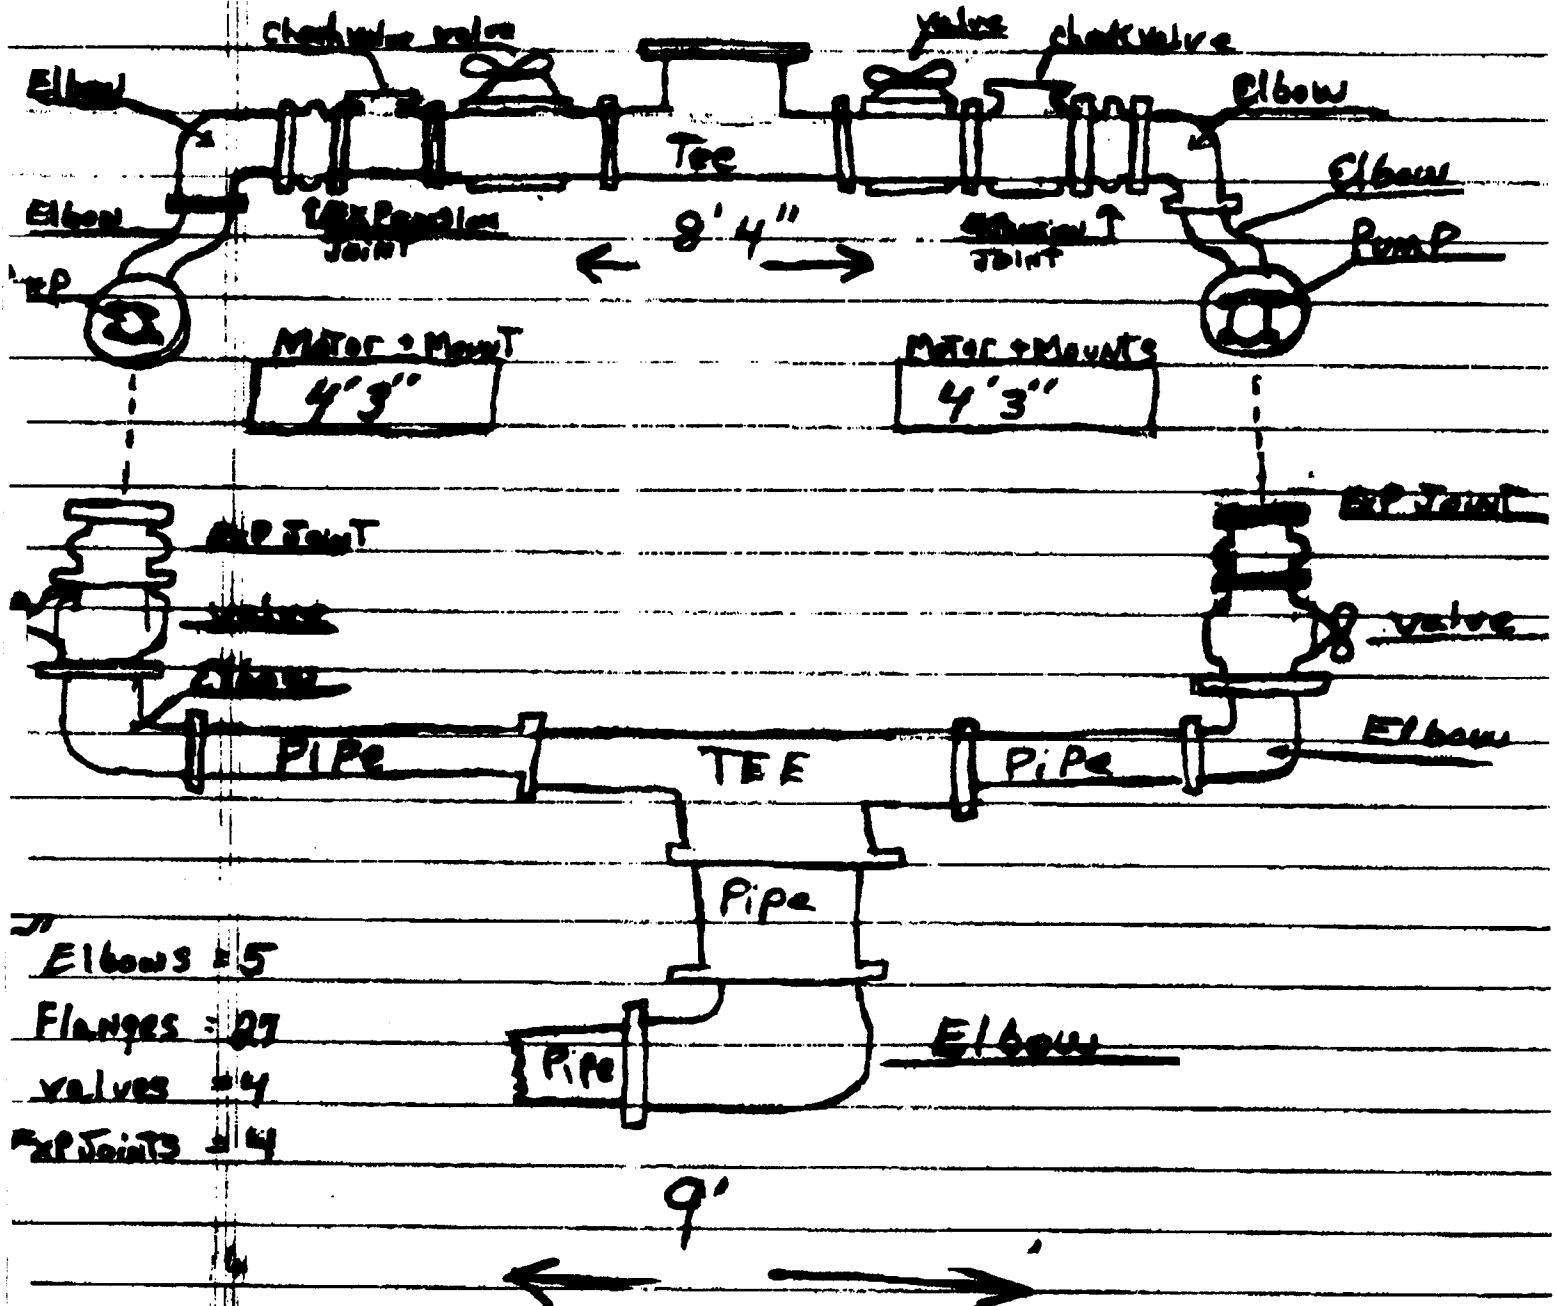 checkvalve valve
valve checkvalve
Elbow
Elbow
Tee
Elbow
Elbow
Expansion
Joint
8' 4"
Expansion
Joint
Pump
Motor + Mount
4'3"
Motor + Mounts
4'3"
Exp Joint
Exp Joint
valve
valve
Elbow
Elbow
Pipe
TEE
Pipe
Pipe
Elbows = 5
Flanges = 27
valves = 4
Exp Joints = 4
Pipe
Elbow
9'